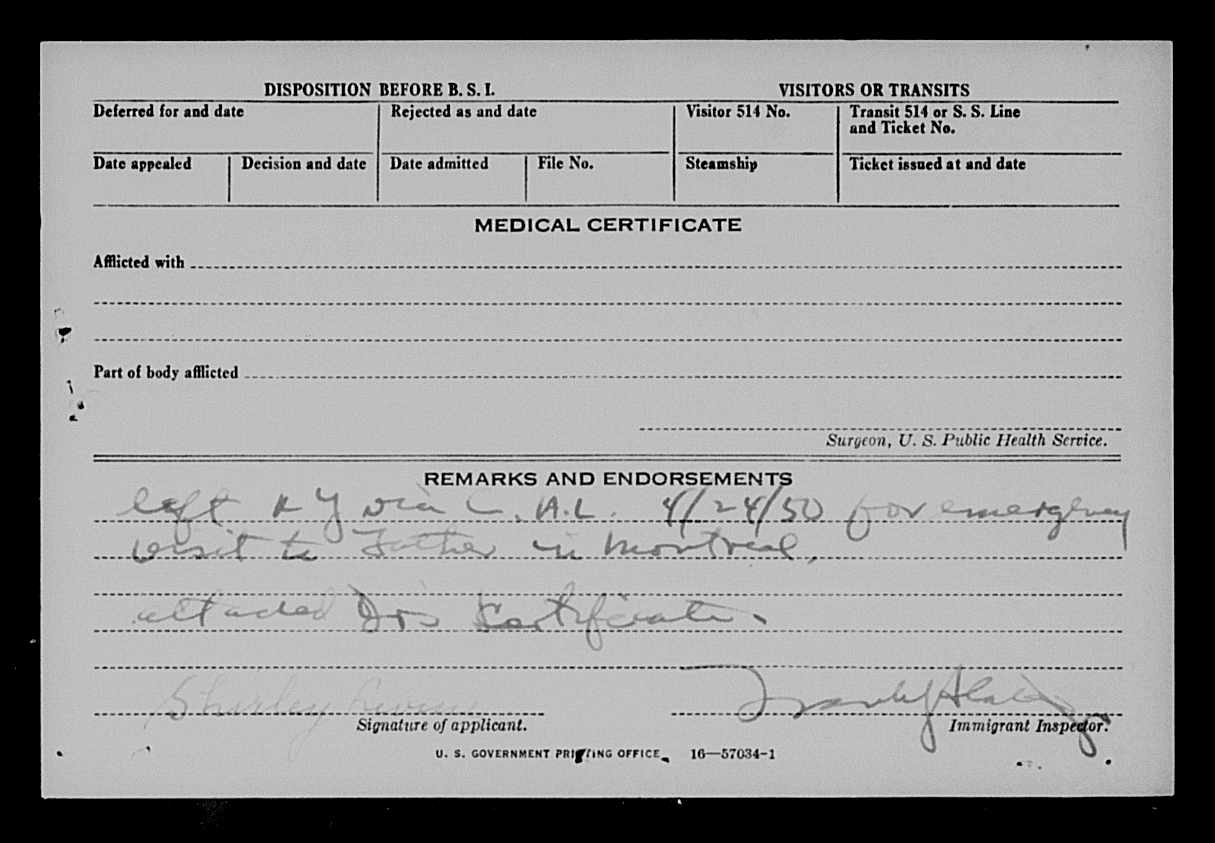 DISPOSITION BEFORE B. S. I.
VISITORS OR TRANSITS
Deferred for and date
Rejected as and date
Visitor 514 No.
Transit 514 or S. S. Line
and Ticket No.
Date appealed
Decision and date
Date admitted
File No.
Steamship
Ticket issued at and date
MEDICAL CERTIFICATE
Afflicted with
Part of body afflicted
Surgeon, U. S. Public Health Service.
REMARKS AND ENDORSEMENTS
left N Y via C.A.L. 4/24/50 for emergency
visit to Father in Montreal,
attached Dr's Certificate.
Shirley
Signature of applicant.
Immigrant Inspector.
U. S. GOVERNMENT PRINTING OFFICE 16—57034-1